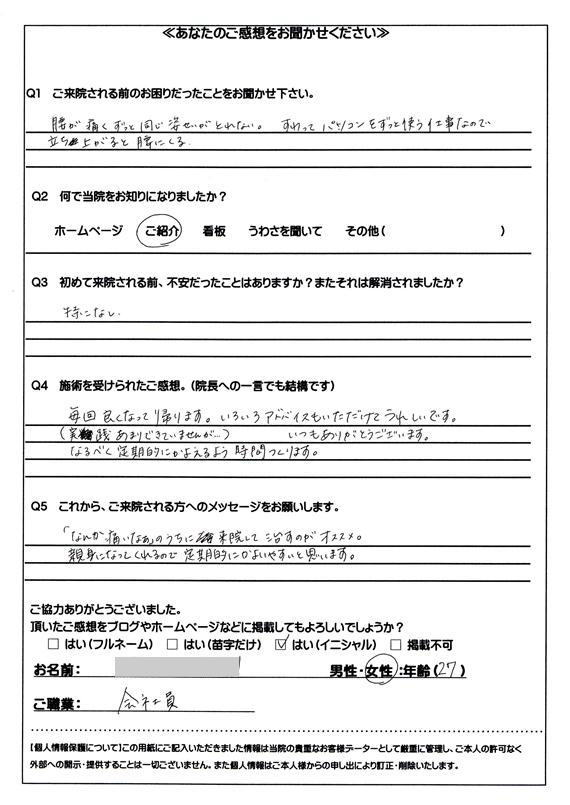 ≪あなたのご感想をお聞かせください≫
Q1 ご来院される前のお困りだったことをお聞かせ下さい。
腰が痛くずっと同じ姿せいがとれない。 すわってパソコンをずっと使う仕事なので
立ち上がると腰にくる
Q2 何で当院をお知りになりましたか？
ホームページ ご紹介 看板 うわさを聞いて その他( )
Q3 初めて来院される前、不安だったことはありますか？またそれは解消されましたか？
特になし
Q4 施術を受けられたご感想。（院長への一言でも結構です）
毎回良くなって帰ります。いろいろアドバイスもいただけてうれしいです。
(実践あまりできていませんが…) いつもありがとうございます。
なるべく定期的にかよえるよう時間つくります。
Q5 これから、ご来院される方へのメッセージをお願いします。
「なんか痛いなぁ」のうちに来院して治すのがオススメ。
親身になってくれるので定期的にかよいやすいと思います。
ご協力ありがとうございました。
頂いたご感想をブログやホームページなどに掲載してもよろしいでしょうか？
□ はい（フルネーム） □ はい（苗字だけ） ☑ はい（イニシャル） □ 掲載不可
お名前： 男性・女性：年齢(27)
ご職業： 会社員
【個人情報保護について】この用紙にご記入いただきました情報は当院の貴重なお客様データーとして厳重に管理し、ご本人の許可なく
外部への開示・提供することは一切ございません。また個人情報はご本人様からの申し出により訂正・削除いたします。